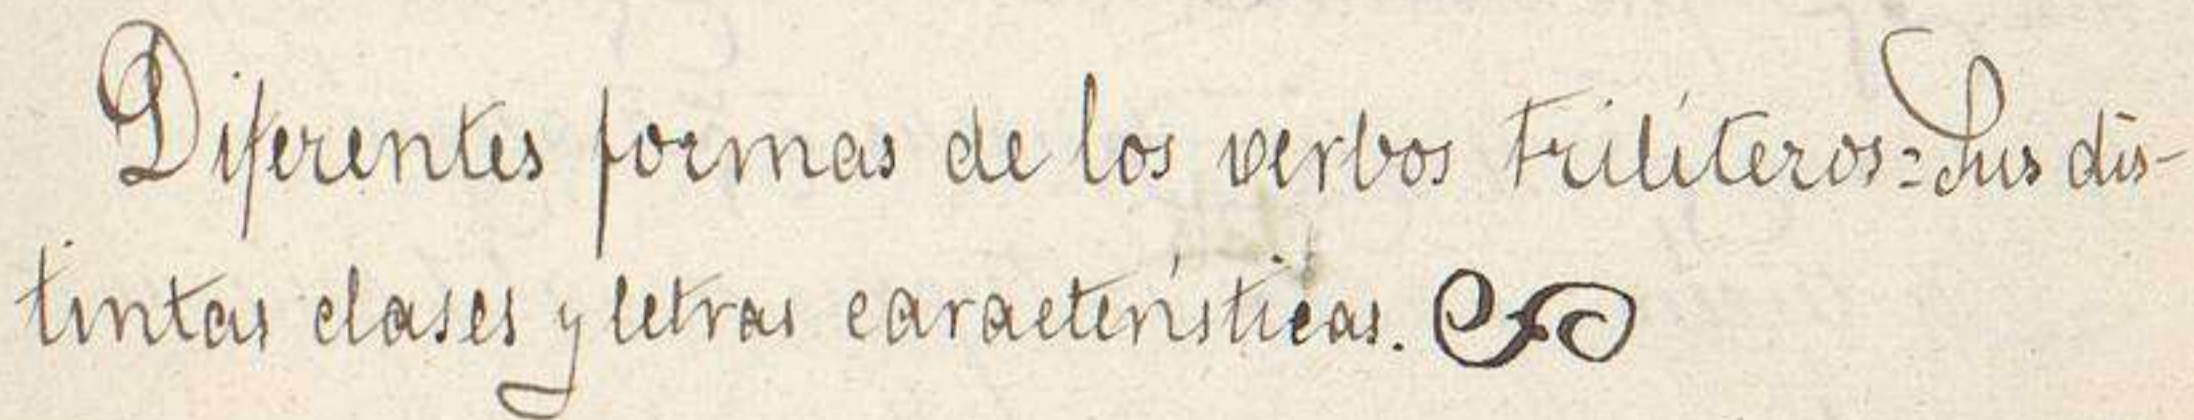 Diferentes formas de los verbos trilíteros=Sus dis-
tintas clases y letras características.